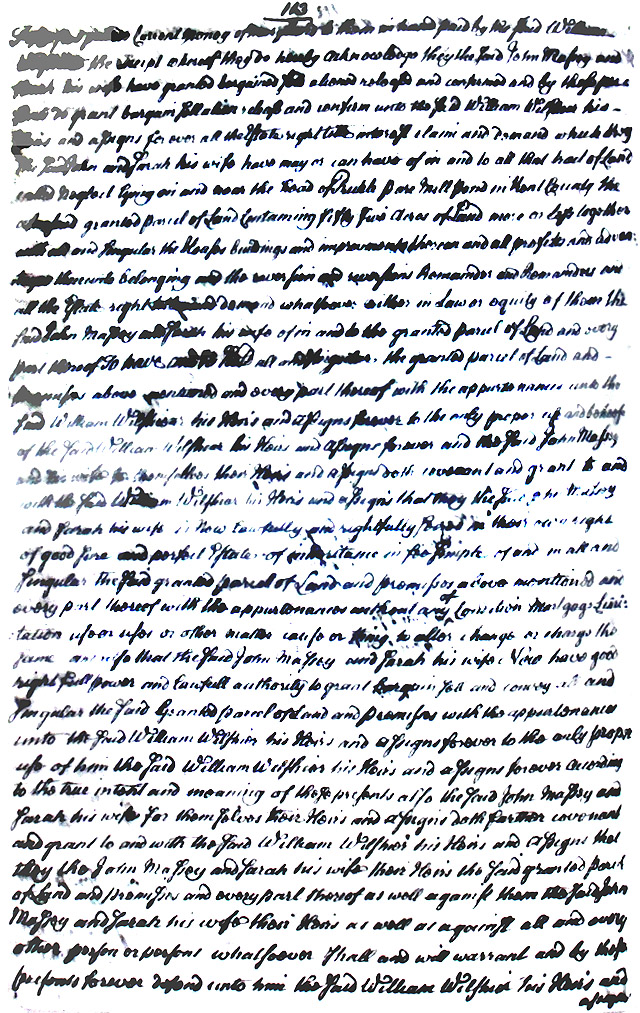 163
Current money of to them in hand paid by the said William
the receipt whereof they do hereby acknowledge they the said John Massey and
Sarah his wife have granted bargained sold aliened released and confirmed and by these pre=
do grant bargain sell alien release and confirm unto the said William Wilshier his
Heirs and assigns for ever all the Estate right title interest claim and demand which they
the said John and Sarah his wife have may or can have of in and to all that tract of Land
called Neglect Lying on and near the head of Pare Mill pond in Kent County the
granted parcel of Land Containing fifty five Acres of Land more or less together
with all and singular the Houses buildings and improvements thereon and all profits and advan=
tages thereunto belonging and the reversion and reversions Remainder and Remainders and
all the Estate right and demand whatsoever either in Law or equity of them the
said John Massey and Sarah his wife of in and to the granted parcel of Land and every
part thereof To have and to hold all and singular the granted parcel of Land and
premises above mentioned and every part thereof with the appurtenances unto the
said William Wilshier his Heirs and assigns forever to the only proper use and behoof
of the said William Wilshier his Heirs and assigns forever and the said John Massey
and his wife for themselves their Heirs and assigns doth covenant and grant to and
with the said William Wilshier his Heirs and assigns that they the said John Massey
and Sarah his wife is Now Lawfully and rightfully seized in their own right
of good sure and perfect Estate of inheritance in fee simple of and in all and
singular the said granted parcel of Land and premises above mentioned and
every part thereof with the appurtenances without any of Condition Mortgage Limi=
tation use or uses or other matter cause or thing to alter change or charge the
same and also that the said John Massey and Sarah his wife Now have good
right full power and Lawfull authority to grant bargain sell and convey all and
singular the said Granted parcel of Land and premises with the appurtenances
unto the said William Wilshier his Heirs and assigns forever to the only proper
use of him the said William Wilshier his Heirs and assigns forever according
to the true intent and meaning of these presents also the said John Massey and
Sarah his wife for themselves their Heirs and assigns doth further covenant
and grant to and with the said William Wilshier his Heirs and assigns that
they the John Massey and Sarah his wife their Heirs the said granted parcel
of Land and premises and every part thereof as well against them the said John
Massey and Sarah his wife their Heirs as well as against all and every
other person or persons whatsoever shall and will warrant and by these
presents forever defend unto him the said William Wilshier his Heirs and
assigns